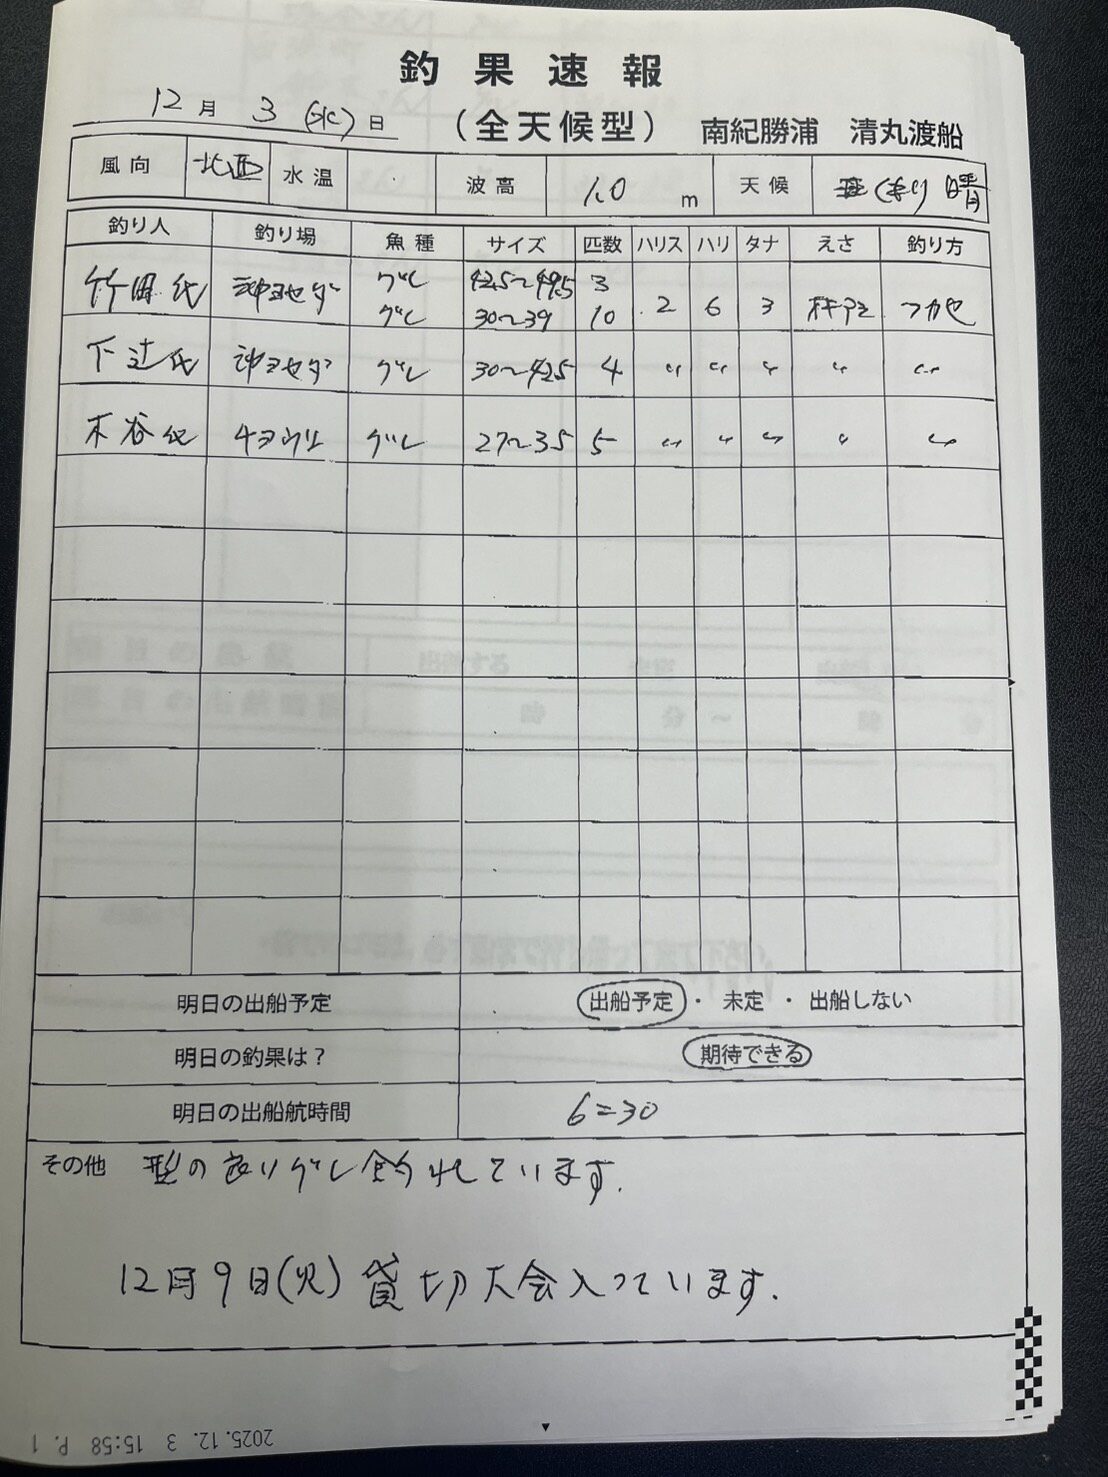 釣果速報
12月 3 (水) 日 (全天候型) 南紀勝浦 清丸渡船
風向 北西 水温 波高 1.0 m 天候 くもり 晴
釣り人 釣り場 魚種 サイズ 匹数 ハリス ハリ タナ えさ 釣り方
竹田氏 沖ヨセダ グレ 42.5〜49.5 3
グレ 30〜39 10 2 6 3 オキアミ フカセ
下辻氏 沖ヨセダ グレ 30〜42.5 4 〃 〃 〃 〃 〃
木谷氏 グレ 27〜35 5 〃 〃 〃 〃 〃
明日の出船予定 出船予定 ・ 未定 ・ 出船しない
明日の釣果は? 期待できる
明日の出船航時間 6=30
その他 型の良いグレ釣れています.
12月9日(火) 貸切大会入っています.
2025.12. 3 15:58 P. 1